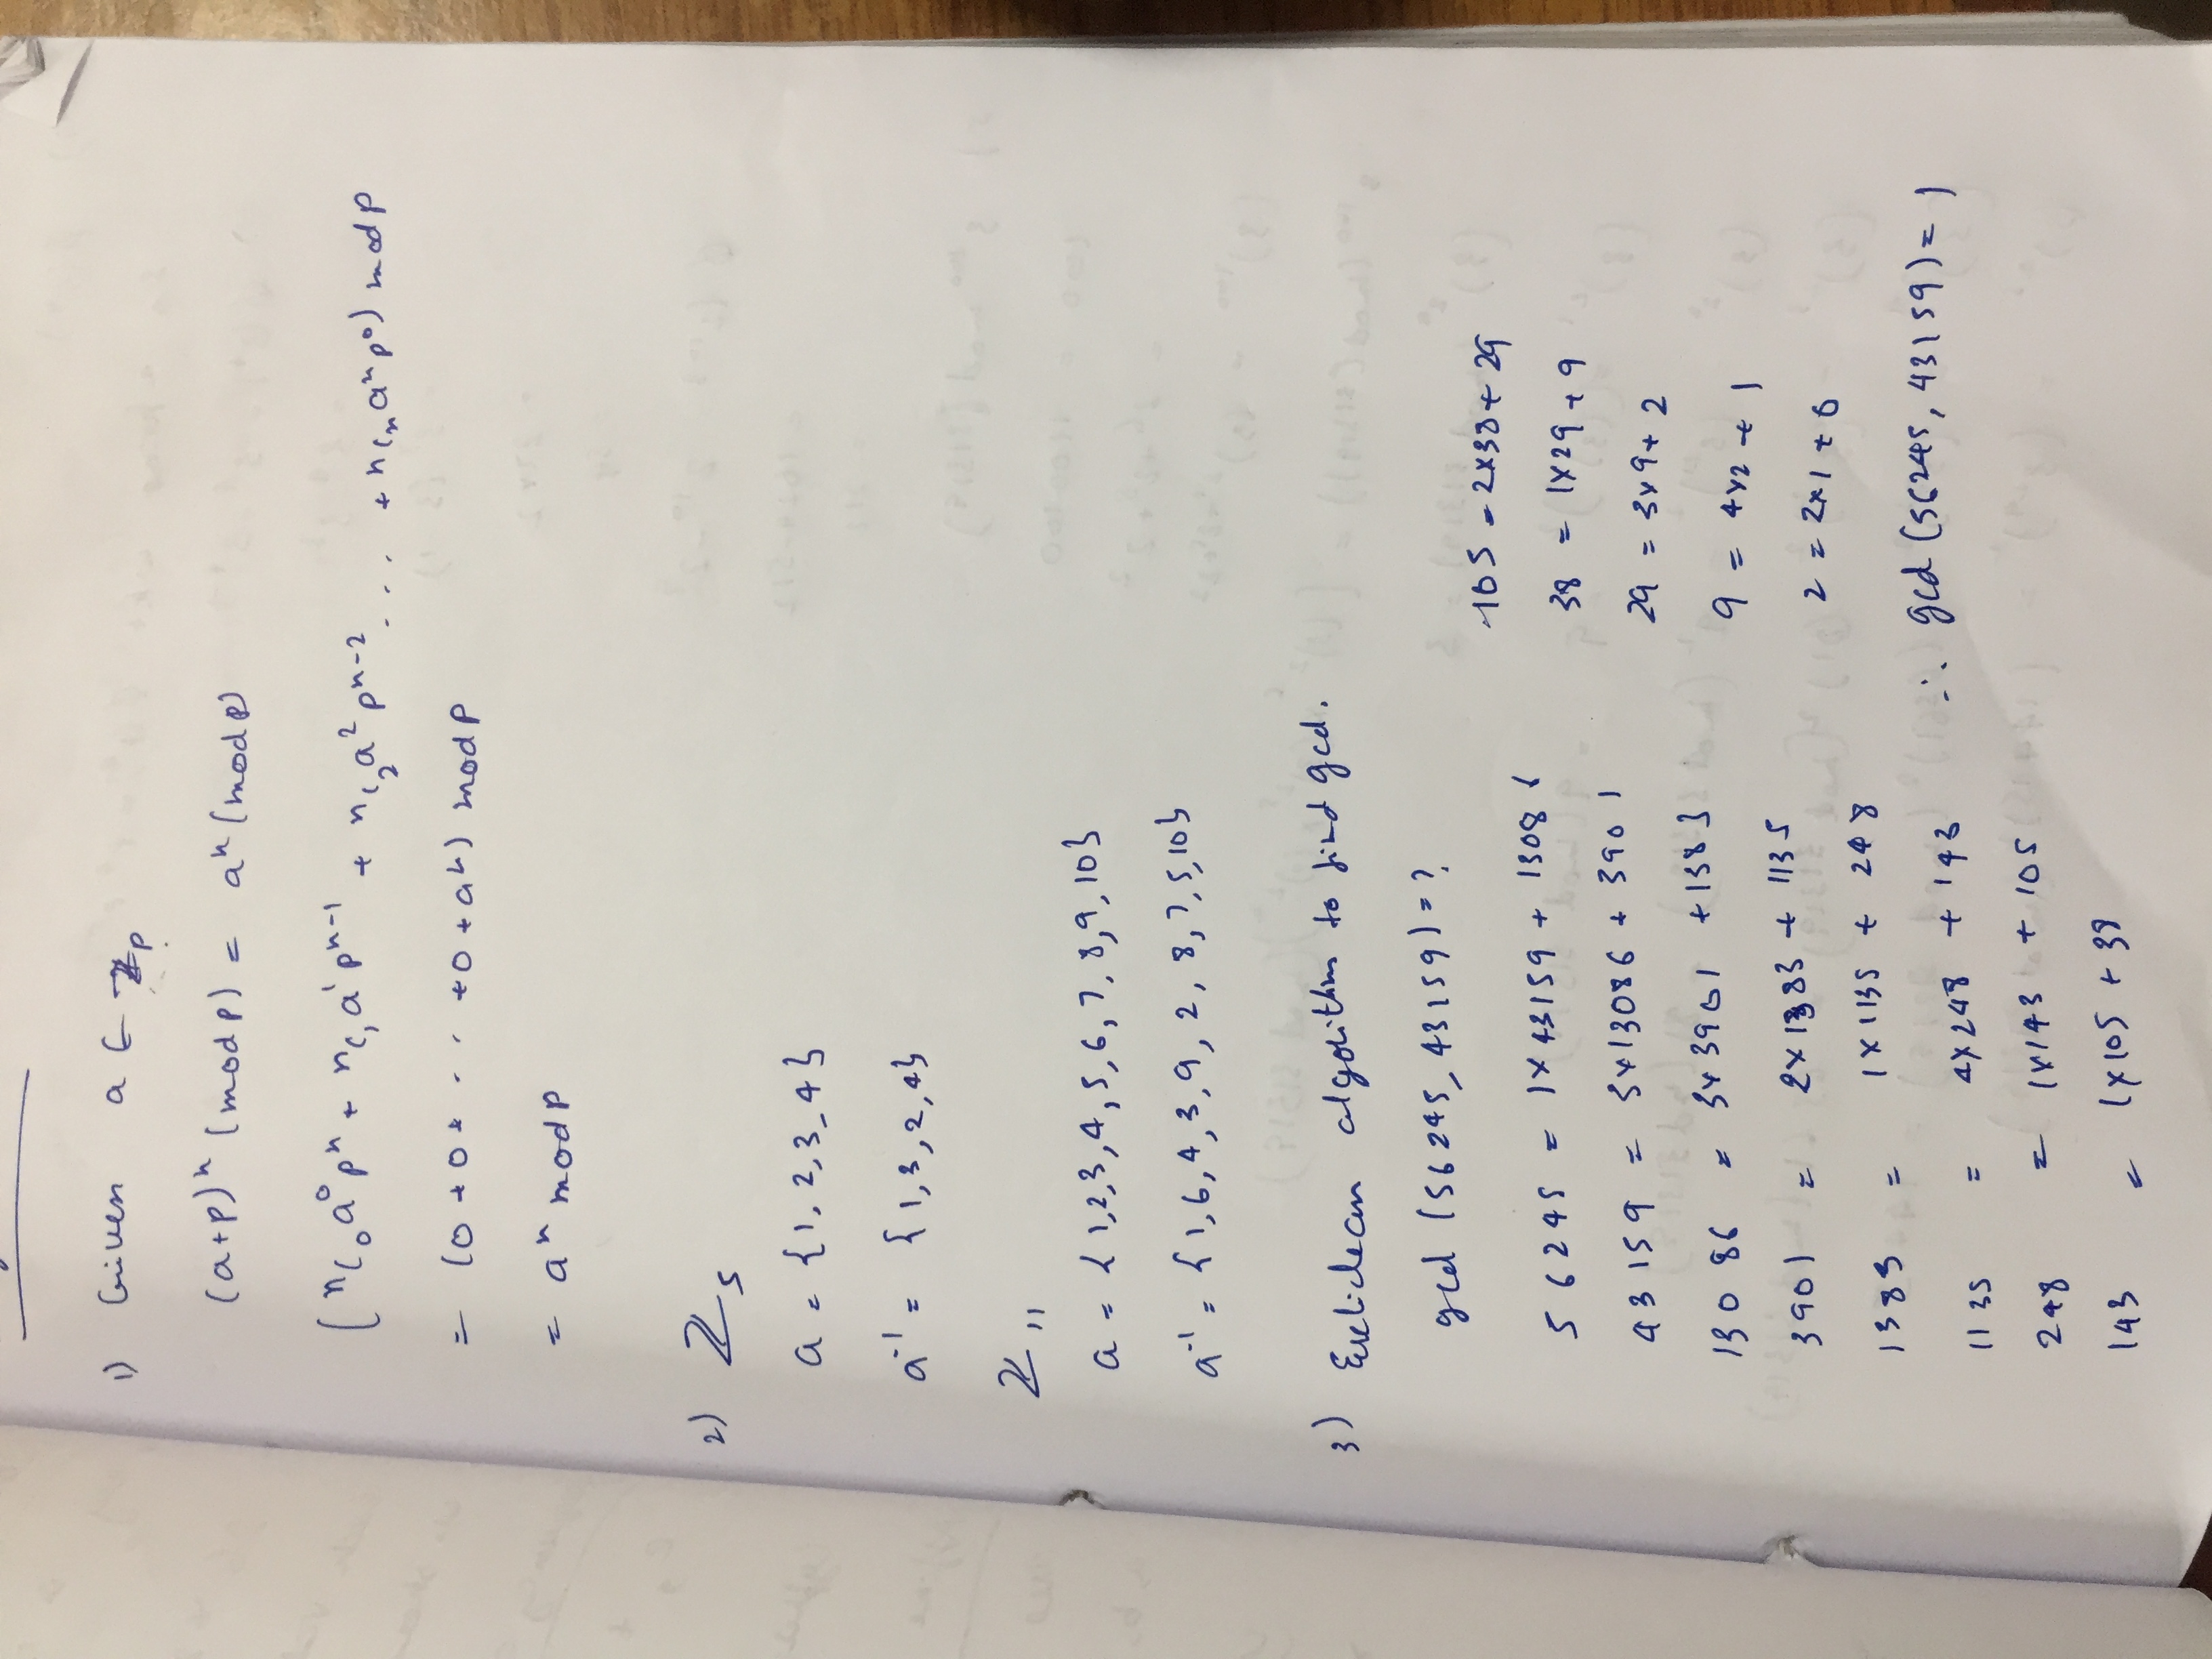 1) Given a ∈ ℤp
(a+p)ⁿ (mod p) = aⁿ (mod p)
(ⁿC₀a⁰pⁿ + ⁿC₁a¹pⁿ⁻¹ + ⁿC₂a²pⁿ⁻² ... + ⁿCₙaⁿp⁰) mod p
= (0+0+ ... +0+aⁿ) mod p
= aⁿ mod p
2) ℤ₅
a = {1, 2, 3, 4}
a⁻¹ = {1, 3, 2, 4}
ℤ₁₁
a = {1,2,3,4,5,6,7,8,9,10}
a⁻¹ = {1,6,4,3,9,2,8,7,5,10}
3) Euclidean algorithm to find gcd.
gcd (56245, 43159) = ?
56245 = 1×43159 + 13086
43159 = 3×13086 + 3901
13086 = 3×3901 + 1383
3901 = 2×1383 + 1135
1383 = 1×1135 + 248
1135 = 4×248 + 143
248 = 1×143 + 105
143 = 1×105 + 38
105 = 2×38 + 29
38 = 1×29 + 9
29 = 3×9 + 2
9 = 4×2 + 1
2 = 2×1 + 0
∴ gcd (56245, 43159) = 1